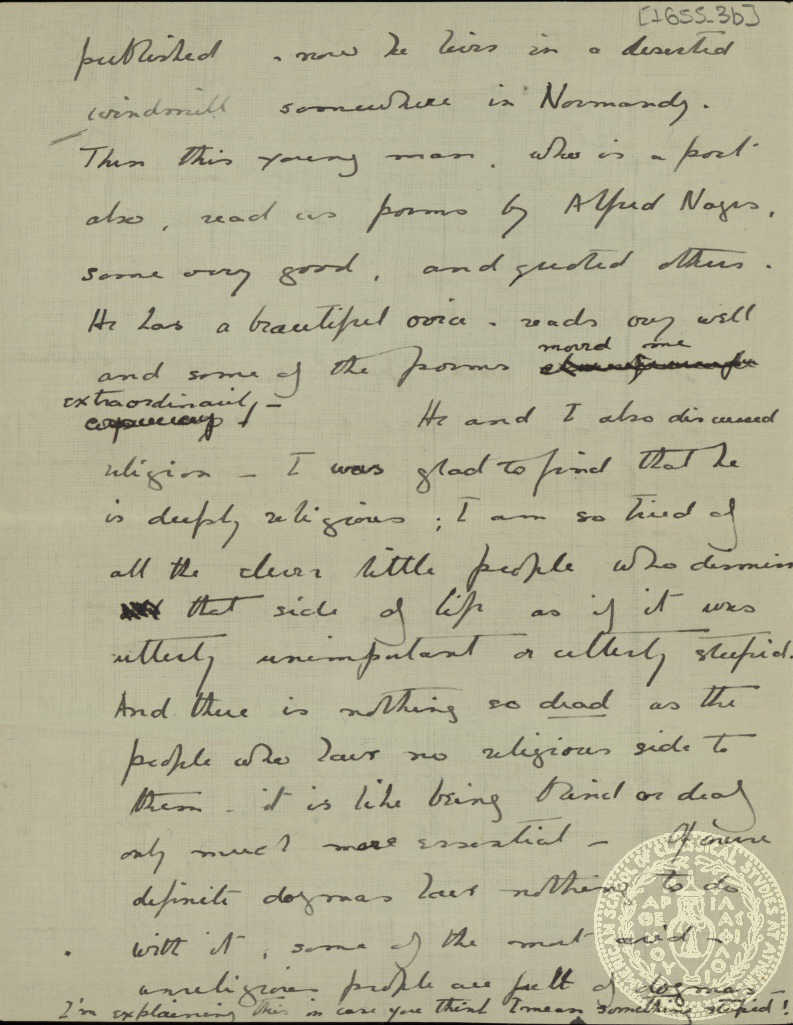 [1655_3b]
published - now he lives in a deserted
windmill somewhere in Normandy.
Then this young man, who is a poet
also, read us poems by Alfred Noyes,
some very good, and quoted others.
He has a beautiful voice - reads very well
moved me
and some of the poems
extraordinarily -
He and I also discussed
religion - I was glad to find that he
is deeply religious; I am so tired of
all the clever little people who dismiss
that side of life as if it was
utterly unimportant or utterly stupid.
And there is nothing so dead as the
people who have no religious side to
them - it is like being blind or deaf
only much more essential - Of course
definite dogmas have nothing to do
with it, some of the most arid -
unreligious people are full of dogmas -
I'm explaining this in case you think I mean something stupid!
AMERICAN SCHOOL OF CLASSICAL STUDIES AT ATHENS